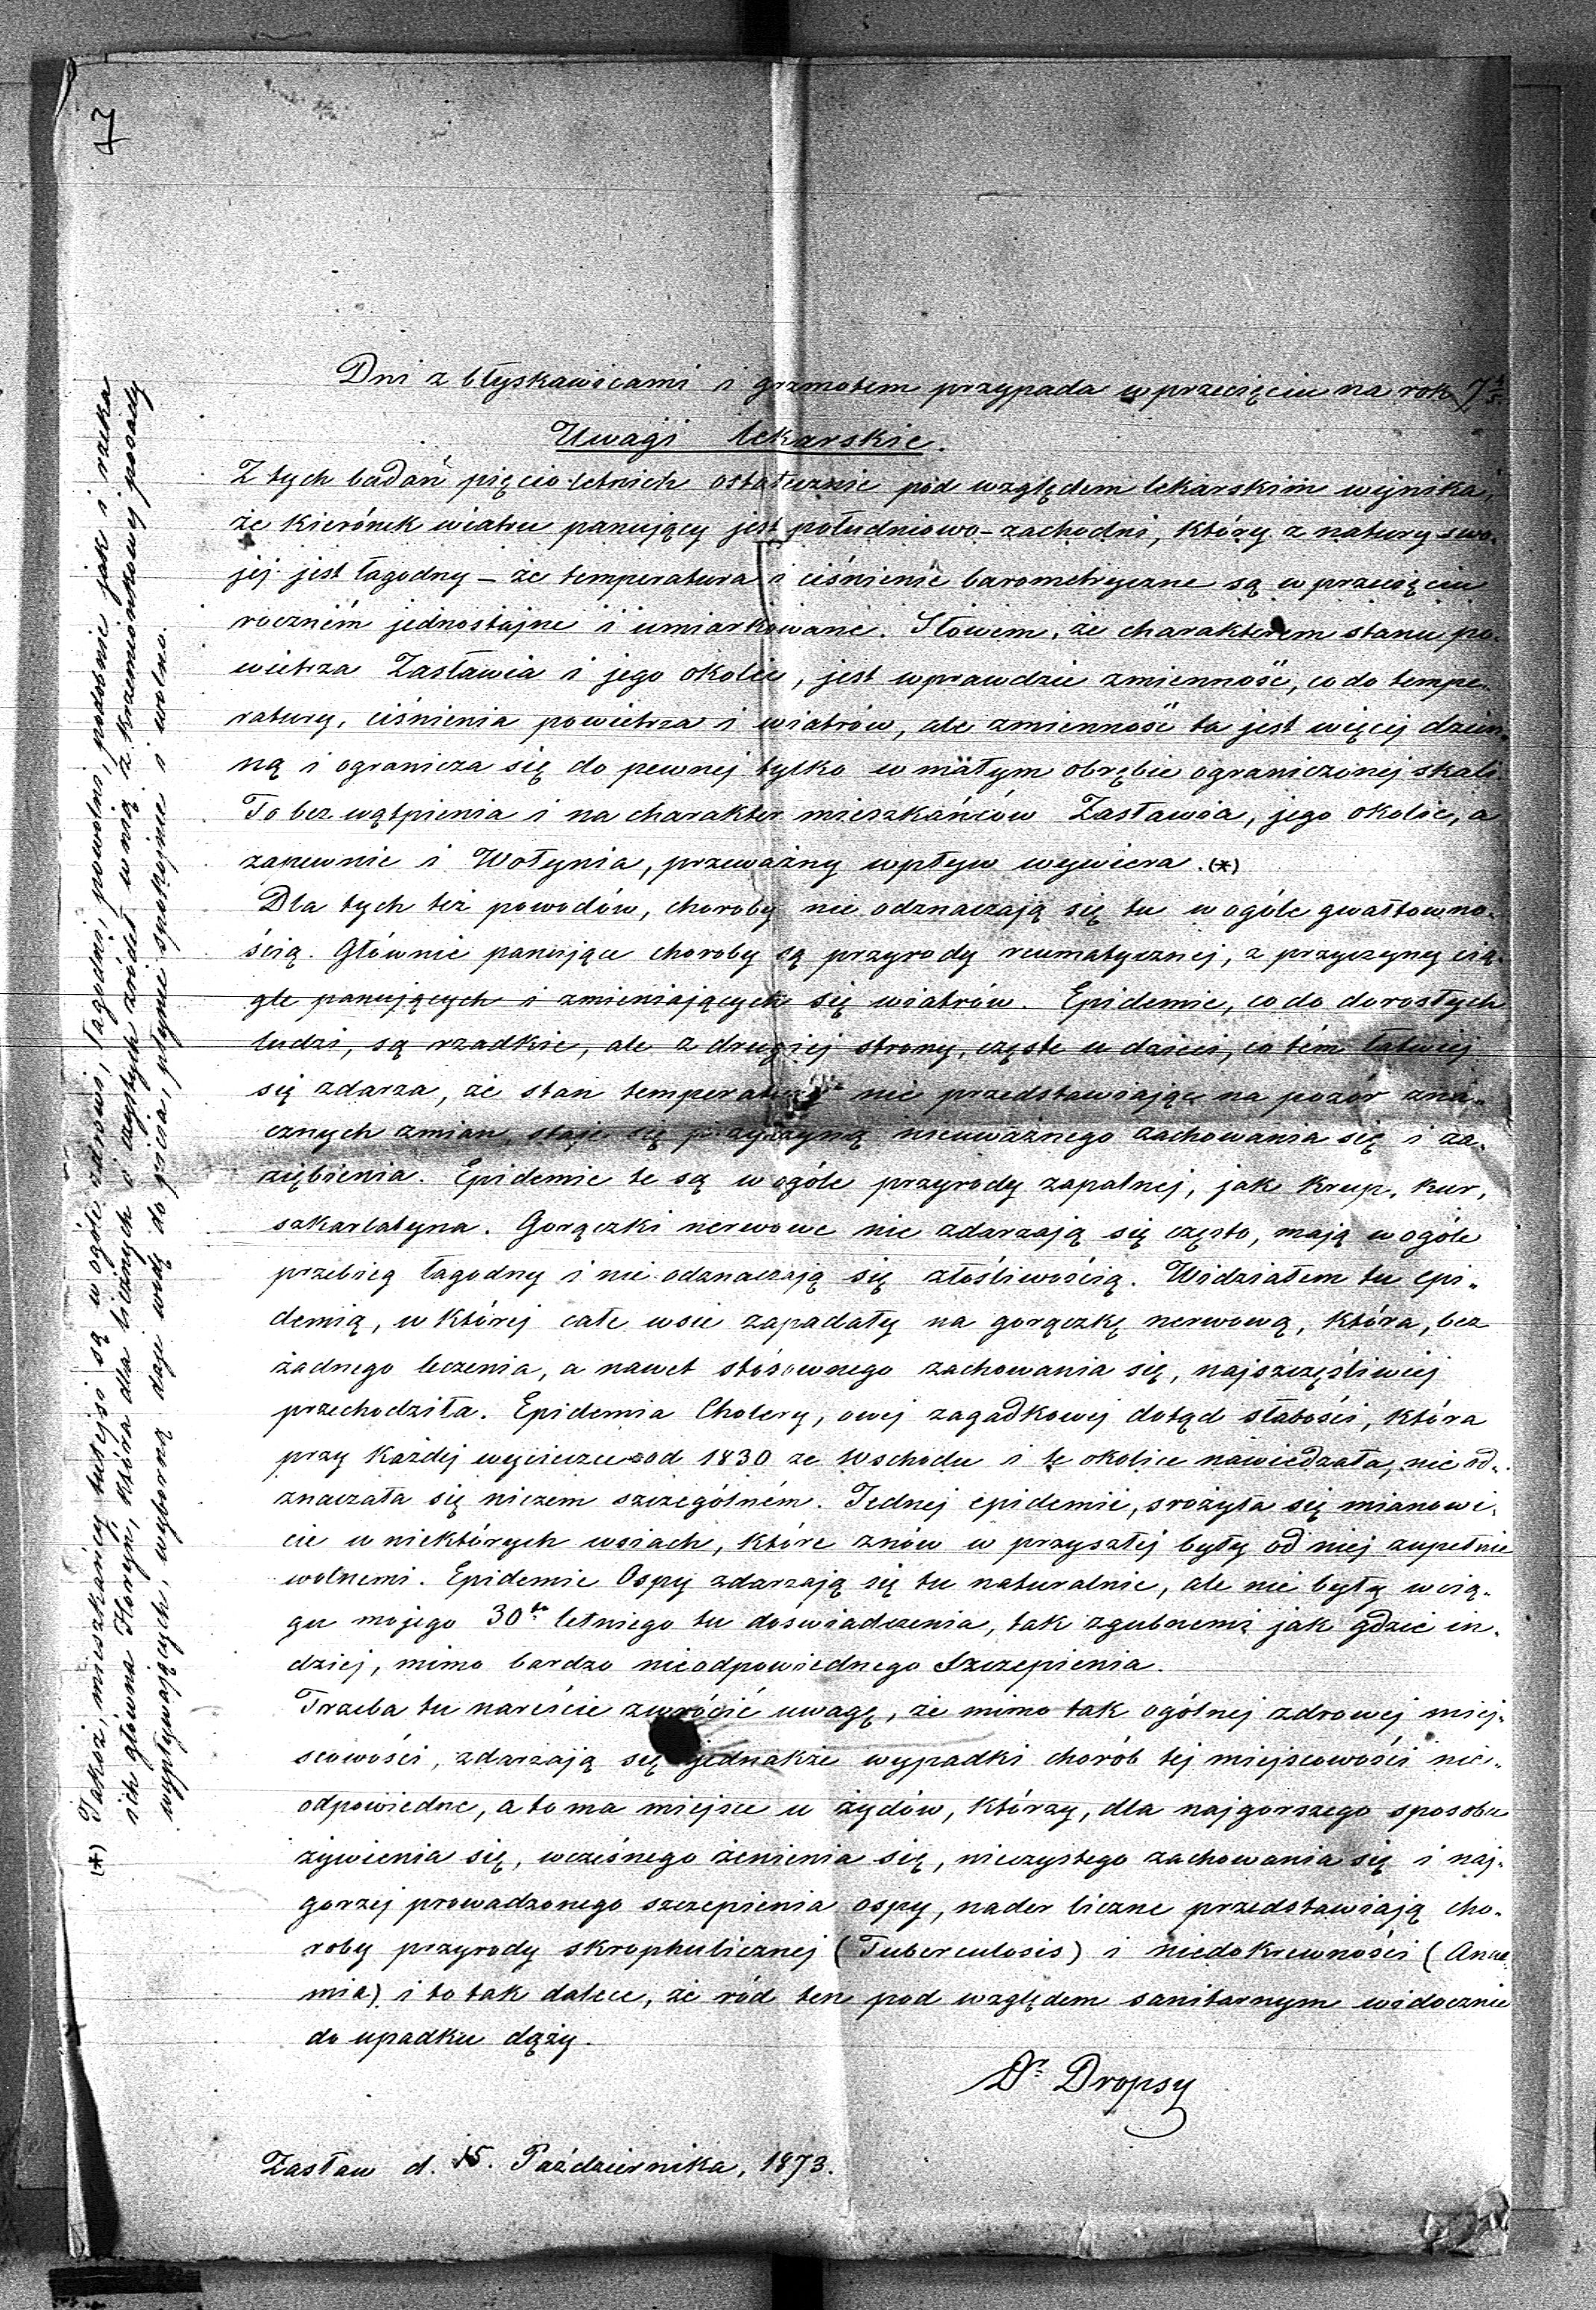 7
Dni z błyskawicami i grzmotem przypada w przecięciu na rok 7
Uwagi lekarskie.
Z tych badań pięcio-letnich ostatecznie pod względem lekarskim wynika,
że kierónek wiatru panujący jest południowo-zachodni, który z natury swo-
jej jest łagodny – że temperatura i ciśnienie barometryczne są w przecięciu
roczném jednostajne i umiarkowane. Słowem, że charakterem stanu po-
wietrza Zasławia i jego okolic, jest wprawdzie zmienność, co do tempe-
ratury, ciśnienia powietrza i wiatrów, ale zmienność ta jest więcej dzien-
ną i ogranicza się do pewnej tylko w małym obrębie ograniczonej skali.
To bez wątpienia i na charakter mieszkańców Zasławia, jego okolic, a
zapewnie i Wołynia, przeważny wpływ wywiera. (*)
Dla tych też powodów, choroby nie odznaczają się tu w ogóle gwałtowno-
ścią. Głównie panujące choroby są przyrody reumatycznej, z przyczyny cią-
gle panujących i zmieniających się wiatrów. Epidemie, co do dorosłych
ludzi, są rzadkie, ale z drugiej strony, częste u dzieci, co tém łatwiej
się zdarza, że stan temperatury nie przedstawiając na pozór zna-
cznych zmian, staje się przyczyną nieuważnego zachowania się i za-
ziębienia. Epidemie te są w ogóle przyrody zapalnej, jak krup, kur,
szkarlatyna. Gorączki nerwowe nie zdarzają się często, mają w ogóle
przebieg łagodny i nie odznaczają się złośliwością. Widziałem tu epi-
demią, w której całe wsie zapadały na gorączkę nerwową, która, bez
żadnego leczenia, a nawet stósownego zachowania się, najszczęśliwiej
przechodziła. Epidemia Cholery, owej zagadkowej dotąd słabości, która
przy każdej wycieczce od 1830 ze wschodu i te okolice nawiedzała, nie od-
znaczała się niczem szczególném. Jednej epidemii, srożyła się mianowi-
cie w niektórych wsiach, które znów w przyszłej były od niej zupełnie
wolnemi. Epidemie Ospy zdarzają się tu naturalnie, ale nie były w cią-
gu mojego 30to letniego tu doświadczenia, tak zgubnemi jak gdzie in-
dziej, mimo bardzo nieodpowiednego Szczepienia.
Trzeba tu nareście zwrócić uwagę, że mimo tak ogólnej zdrowej miej-
scowości, zdarzają się jednakże wypadki chorób tej miejscowości nie-
odpowiedne, a to ma miejsce u żydów, którzy, dla najgorszego sposobu
żywienia się, wcześnego żenienia się, nieczystego zachowania się i naj-
gorzej prowadzonego szczepienia ospy, nader liczne przedstawiają cho-
roby przyrody skrophulicznej (Tuberculosis) i niedokrewności (Anae-
mia) i to tak dalece, że ród ten pod względem sanitarnym widocznie
do upadku dąży.
Dr Dropsy
Zasław d. 15. Października, 1873.
(*) Jakoż, mieszkańcy tutejsi są w ogóle zdrowi, łagodni, powolni, podobnie jak i rzeka
ich główna Horyń, która dla licznych i czystych źródeł w nią z krzemionkowej posady
wypływających, wyborną daje wodę do picia, płynie spokojnie i wolno.